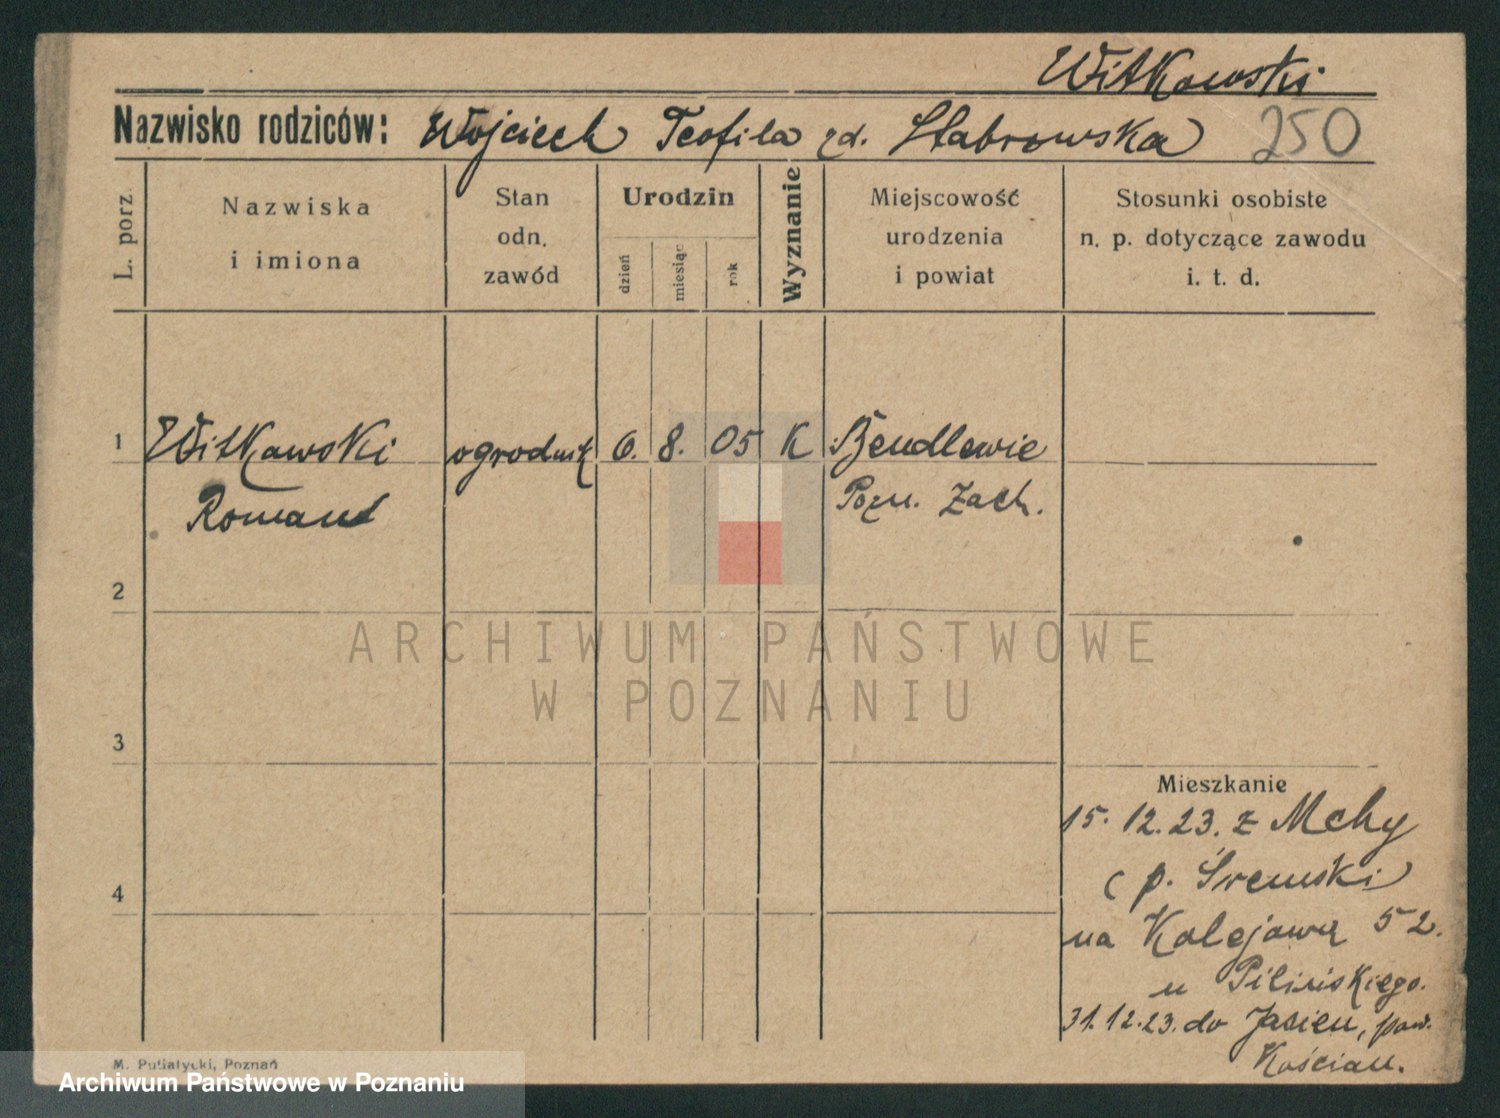 Witkowski
Nazwisko rodziców: Wojciech Teofila zd. Stabrowska 250
L. porz.
Nazwiska
i imiona
Stan
odn.
zawód
Urodzin
dzień
miesiąc
rok
Wyznanie
Miejscowość
urodzenia
i powiat
Stosunki osobiste
n. p. dotyczące zawodu
i. t. d.
1 Witkowski ogrodnik 6. 8. 05 K Bendlewie
Roman Pozn. Zach.
2
ARCHIWUM PAŃSTWOWE
W POZNANIU
3
Mieszkanie
15. 12. 23. z Mchy
(p. Śremski)
4
na Kolejową 52.
u Pilińskiego.
31.12.23. do Jasien, pow.
Kościan.
M. Putiatycki, Poznań
Archiwum Państwowe w Poznaniu